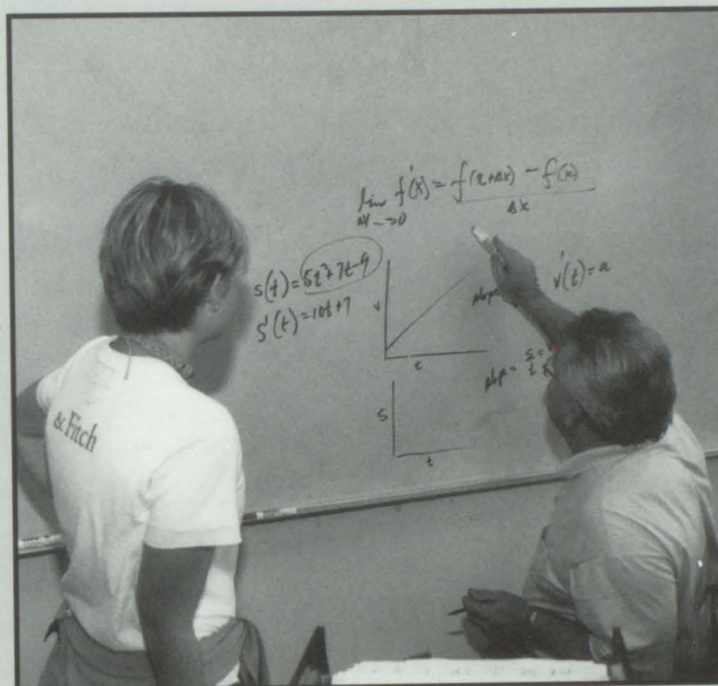 lim f'(x) = f(x+Δx) - f(x)
Δx→0 Δx
s(t) = 5t²+7t-9
s'(t) = 10t+7
v
t
slope = v'(t) = a
slope = s
t
s
t
& Fitch